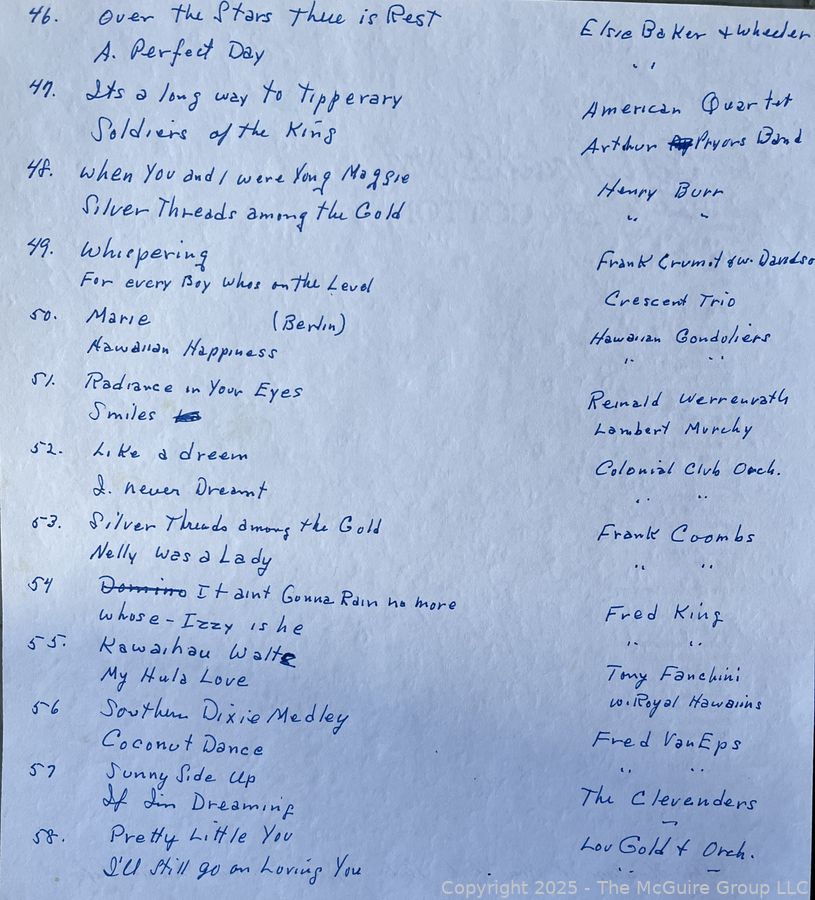 46. Over the Stars There is Rest Elsie Baker + Wheeler
A. Perfect Day " "
47. Its a long way to Tipperary American Quartet
Soldiers of the King Arthur Pryors Band
48. When You and I were Yong Maggie Henry Burr
Silver Threads among the Gold " "
49. Whispering Frank Crumit &w. Davidso
For every Boy whos on the Level Crescent Trio
50. Marie (Berlin) Hawaiian Gondoliers
Hawaiian Happiness " "
51. Radiance in Your Eyes Reinald Werrenrath
Smiles Lambert Murchy
52. Like a dreem Colonial Club Orch.
I. never Dreamt " "
53. Silver Threads among the Gold Frank Coombs
Nelly Was a Lady " "
54 Domino It aint Gonna Rain no more Fred King
whose - Izzy is he " "
55. Kawaihau Waltz Tony Fanchini
My Hula Love w. Royal Hawaiins
56 Southern Dixie Medley Fred VanEps
Coconut Dance " "
57 Sunny Side Up The Clevenders
If I'm Dreaming "
58. Pretty Little You Lou Gold + Orch.
I'll still go on Loving You " "
Copyright 2025 - The McGuire Group LLC